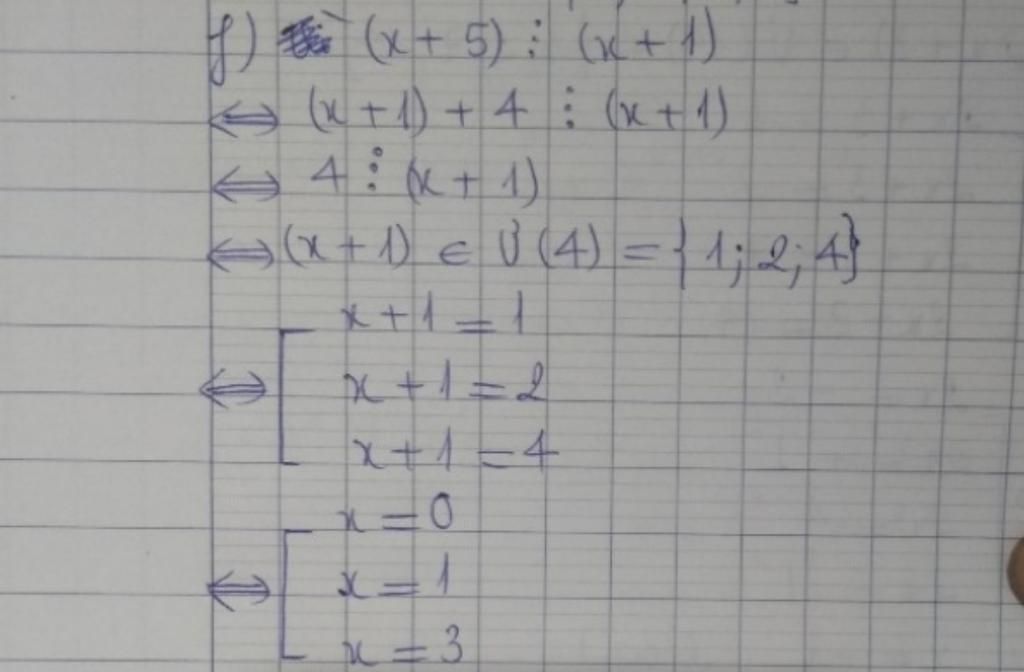 f) (x + 5) ⋮ (x + 1)
⇔ (x + 1) + 4 ⋮ (x + 1)
⇔ 4 ⋮ (x + 1)
⇔ (x + 1) ∈ Ư(4) = {1; 2; 4}
x + 1 = 1
⇔ [ x + 1 = 2
x + 1 = 4
x = 0
⇔ [ x = 1
x = 3